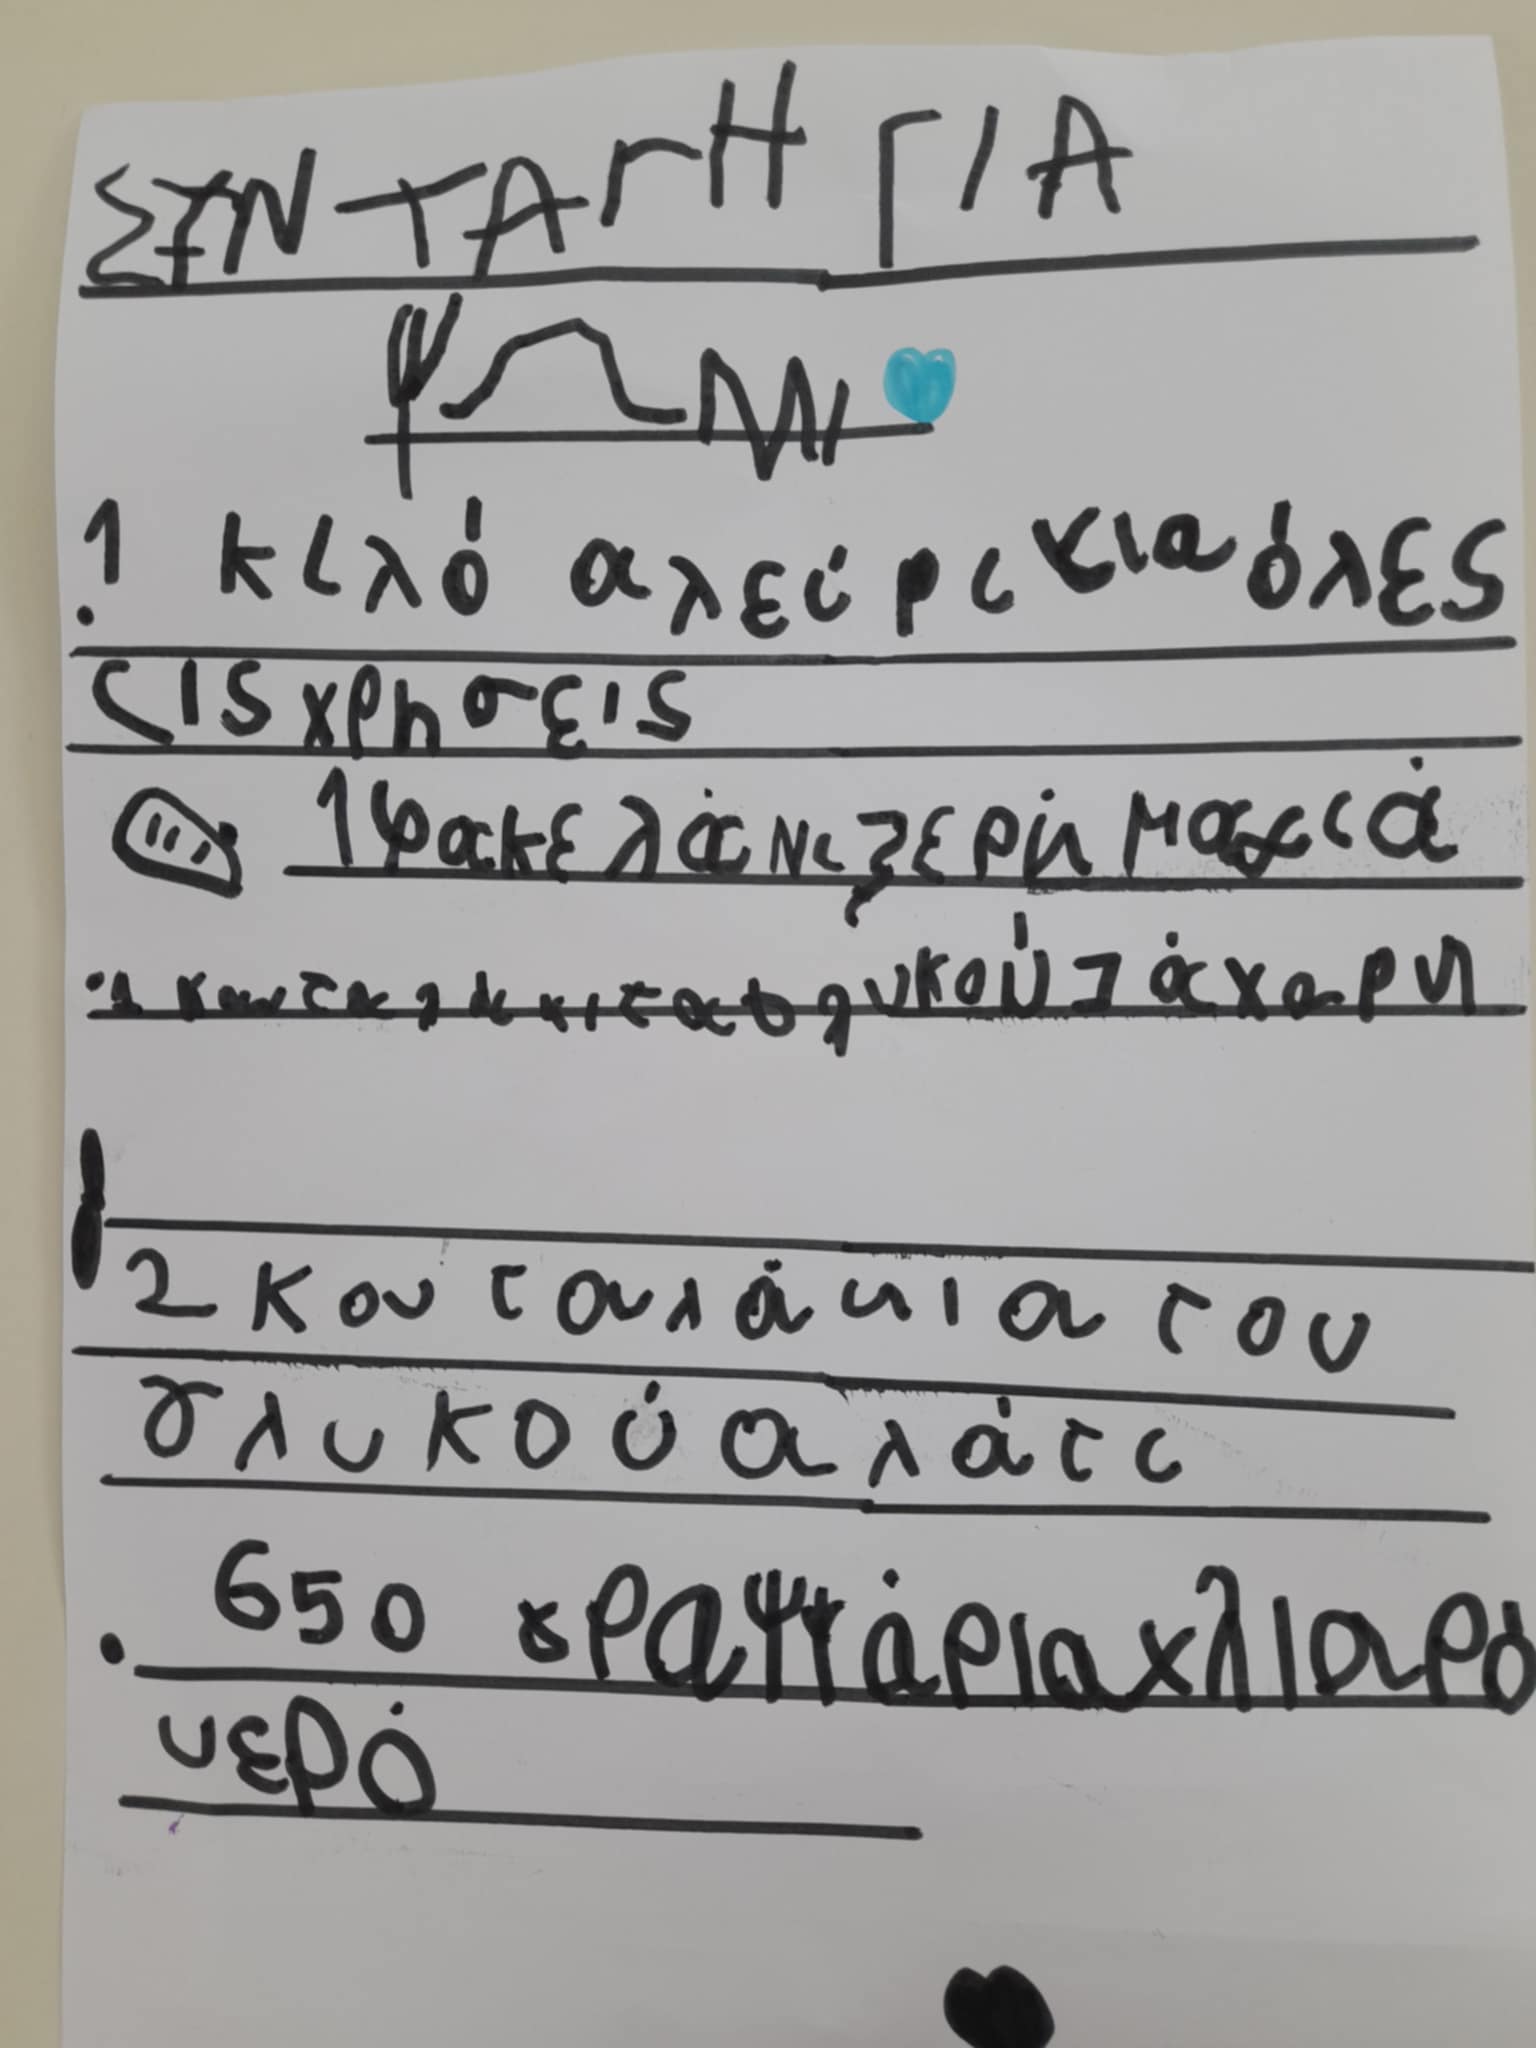 ΣΥΝΤΑΓΗ ΓΙΑ
ΨΩΜΙ
1 κιλό αλεύρι για όλες
τις χρήσεις
1 φακελάκι ξερή μαγιά
1 κουταλάκι του γλυκού ζάχαρη
2 κουταλάκια του
γλυκού αλάτι
650 γραμμάρια χλιαρό
νερό